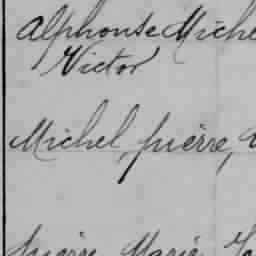 Alphonse Miche
Victor
Michel, pierre, V
pierre Marie Jo